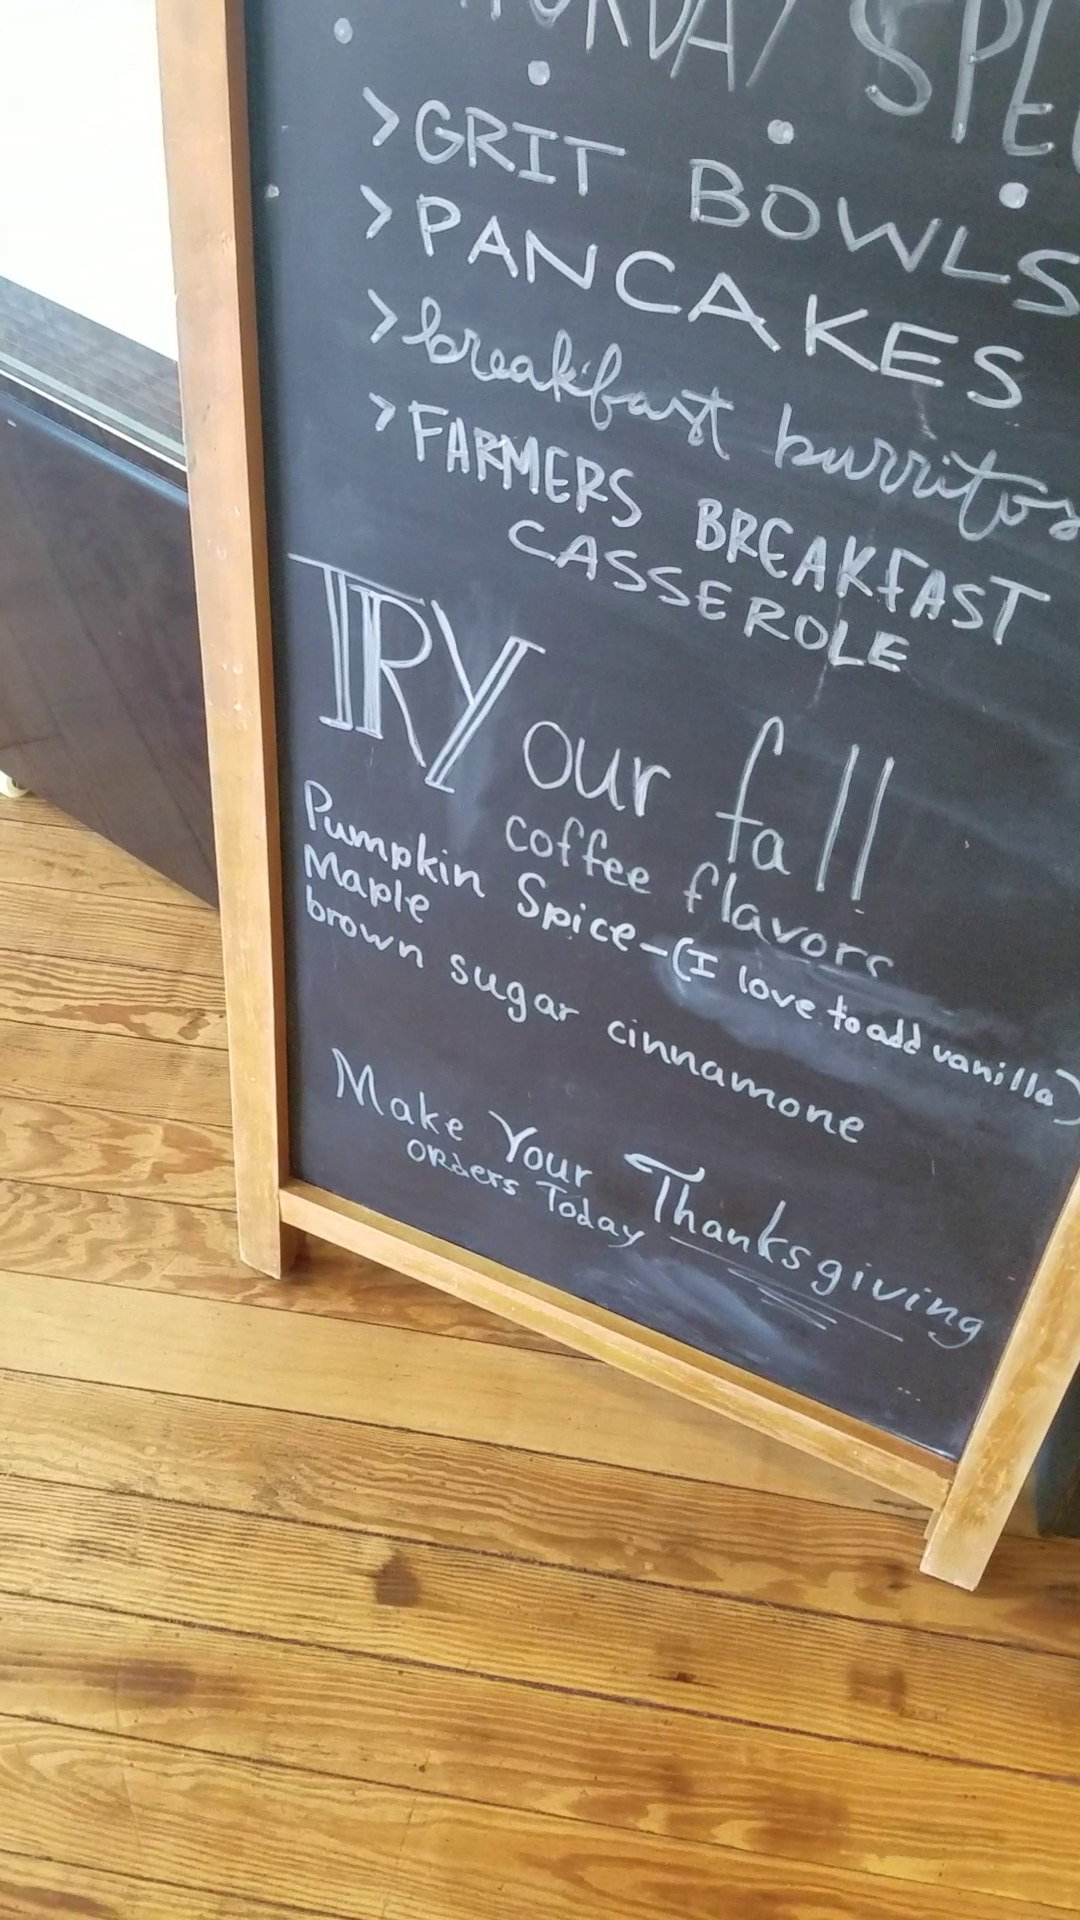 > GRIT BOWLS
> PANCAKES
> breakfast burritos
> FARMERS BREAKFAST
CASSEROLE
TRY our fall
coffee flavors
Pumpkin Spice - (I love to add vanilla)
Maple
brown sugar cinnamone
Make Your Thanksgiving
orders Today